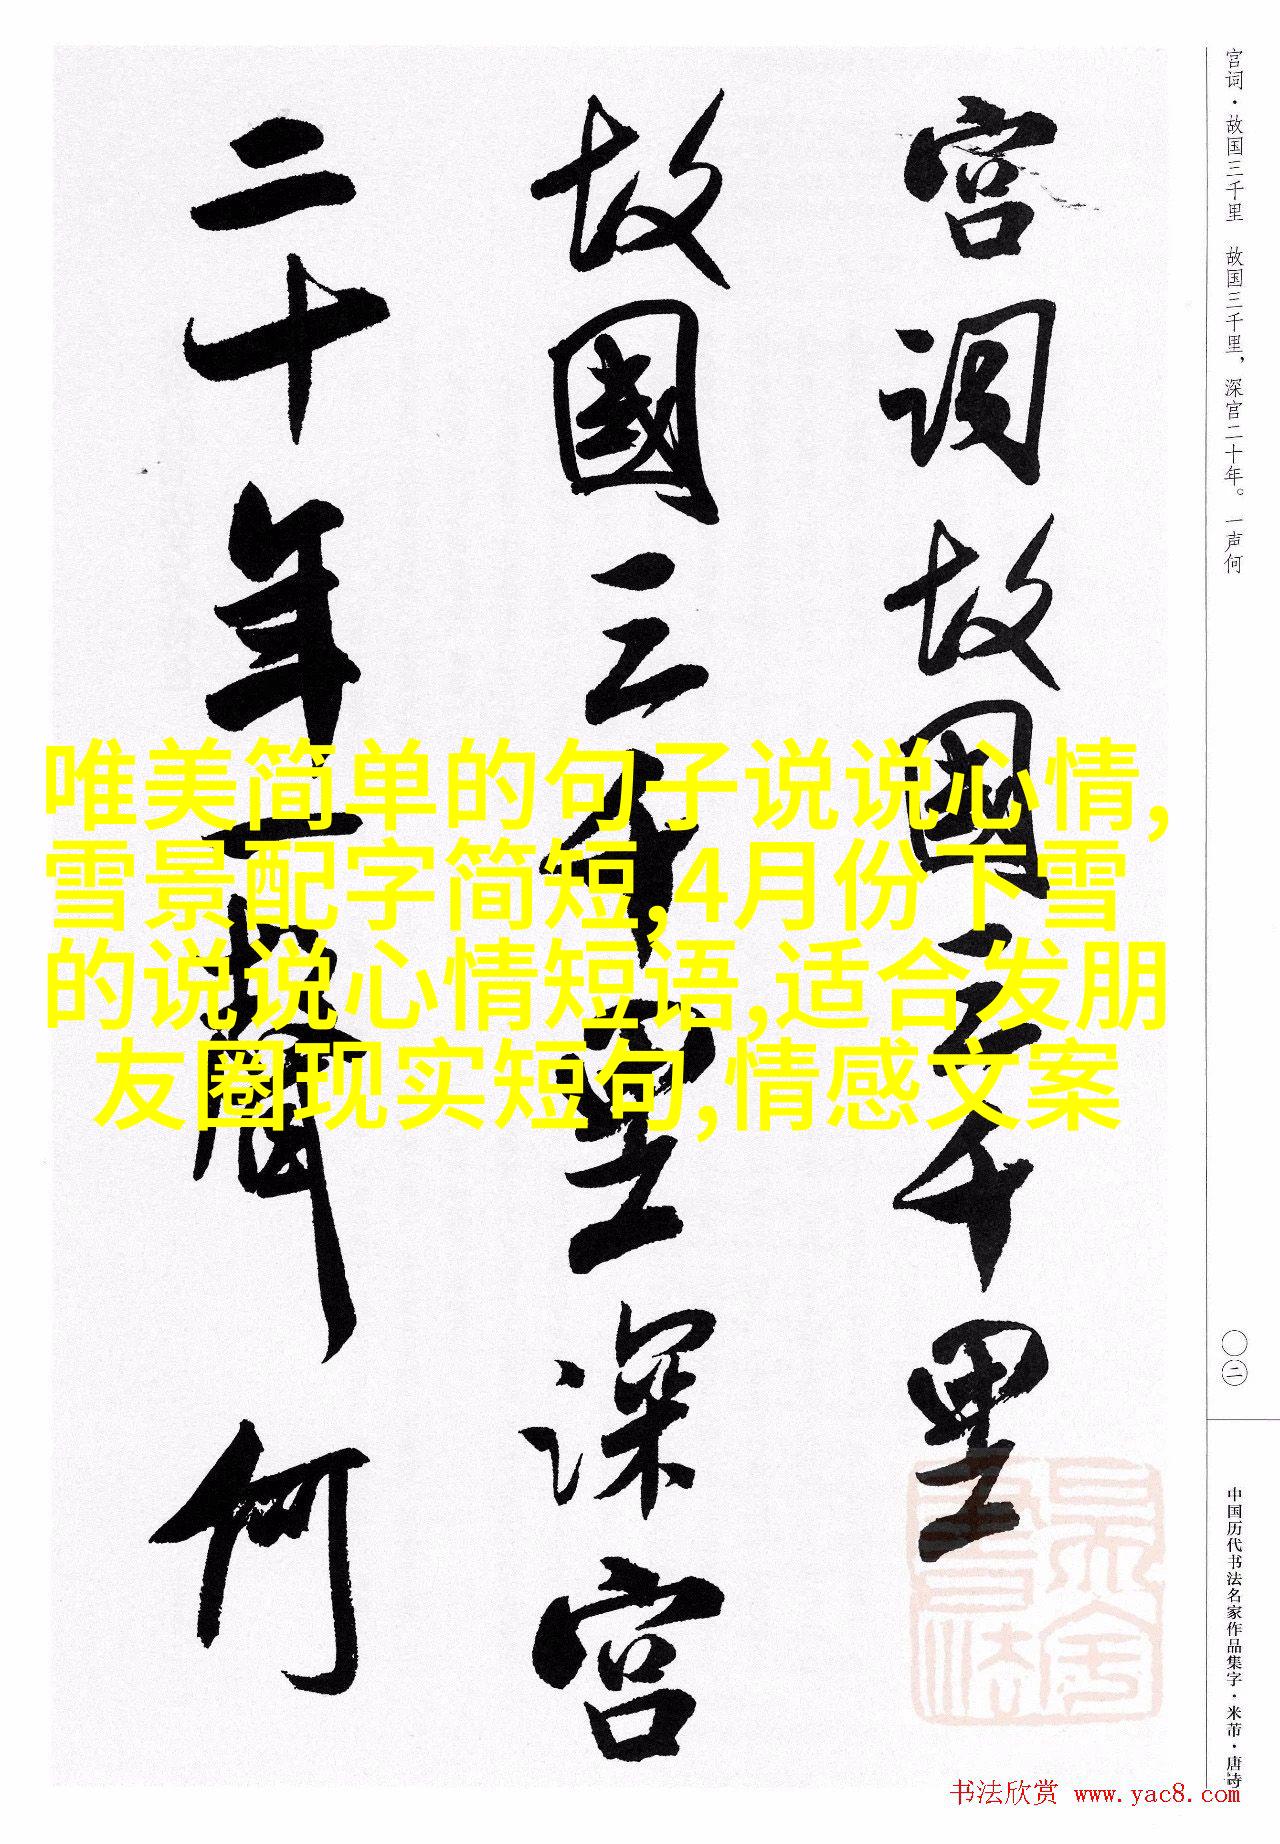 宫词故國三千里
故國三千里深宫
二十年一聲何
唯美简单的句子说说心情,
雪景配字简短,4月份下雪
的说说心情短语,适合发朋
友圈现实短句,情感文案
宫词·故国三千里　故国三千里，深宫二十年。一声何
〇二
中国历代书法名家作品集字·米芾·唐诗
书法欣赏 www.yac8.com